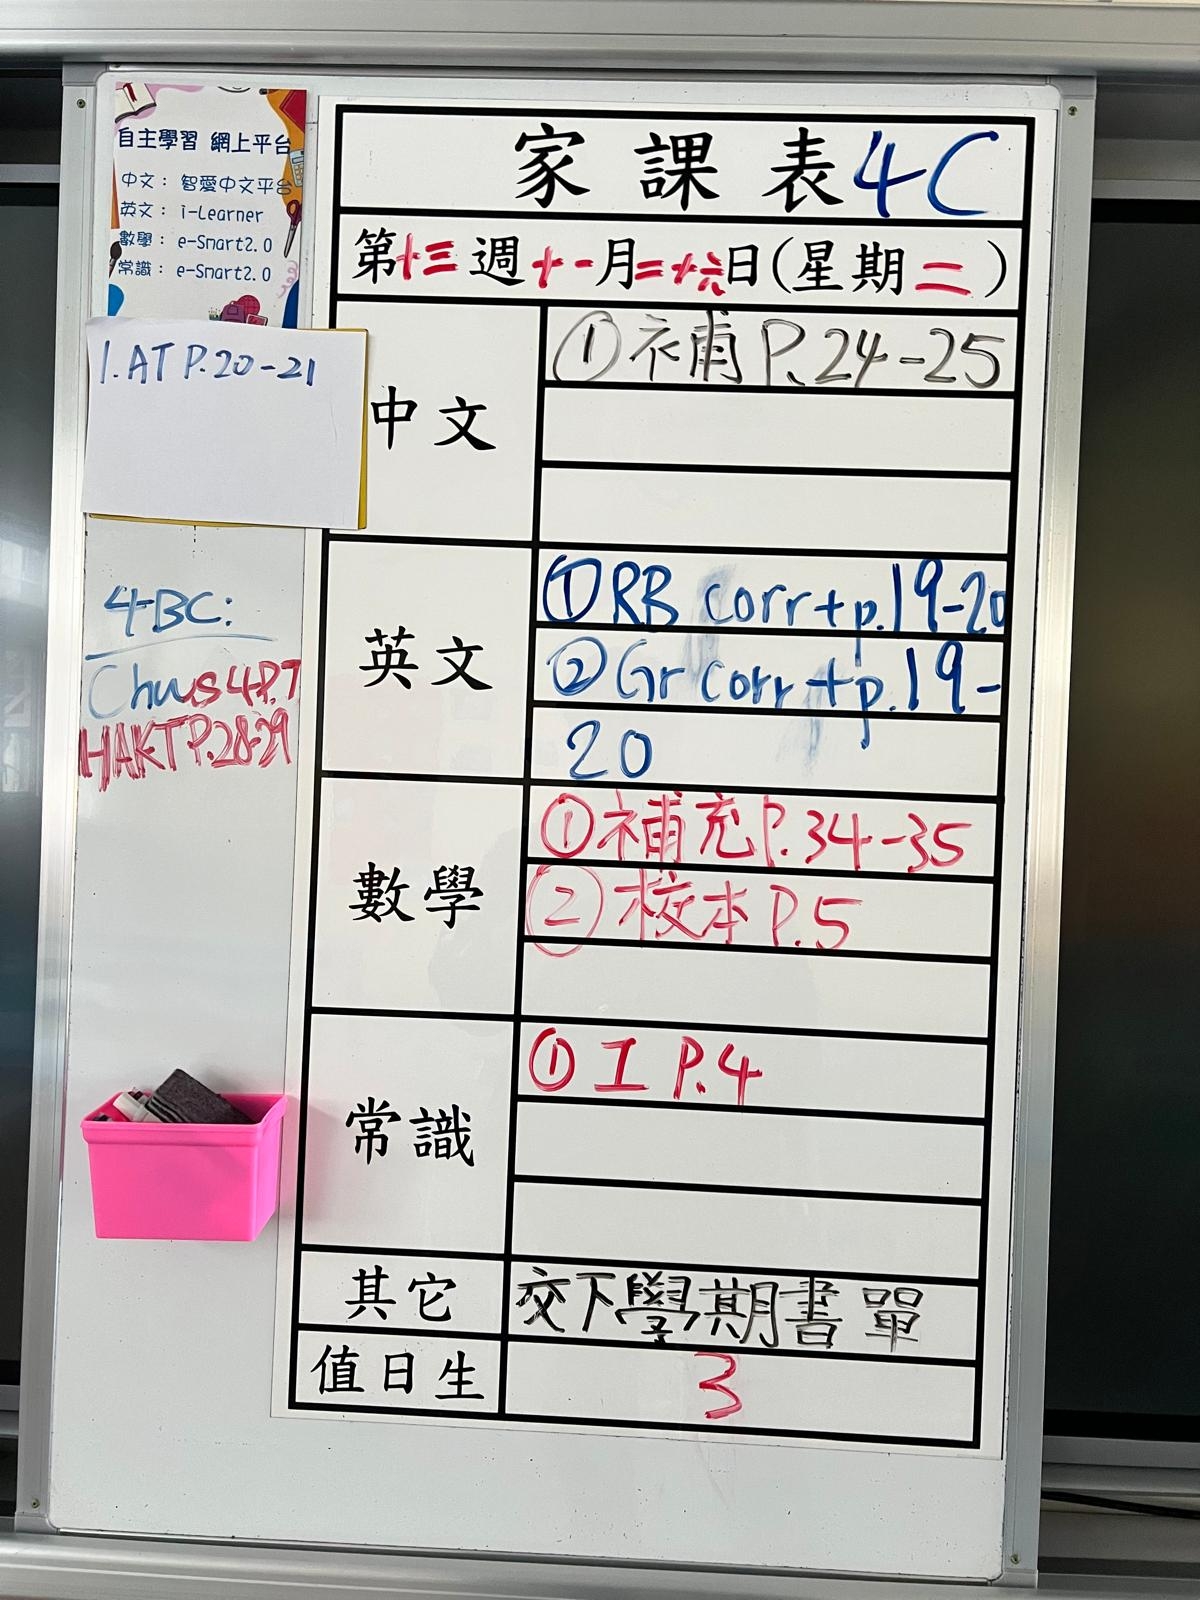 自主學習 網上平台
中文： 智愛中文平台
英文： i-Learner
數學： e-Smart2.0
常識： e-Smart2.0
1. AT P.20-21
4BC:
Chuus 4P.7
HAKT P.28-29
家課表 4C
第十三週十一月二十六日(星期二)
中文
①補 P.24-25
英文
①RB corr+p.19-20
②Gr corr+p.19-
20
數學
①補充P.34-35
②校本P.5
常識
①工 P.4
其它
交下學期書單
值日生
3